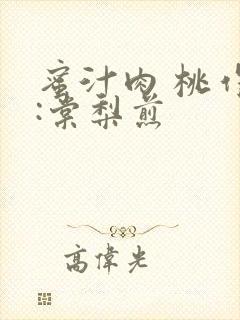 蜜汁肉桃作
:棠梨煎
高偉光